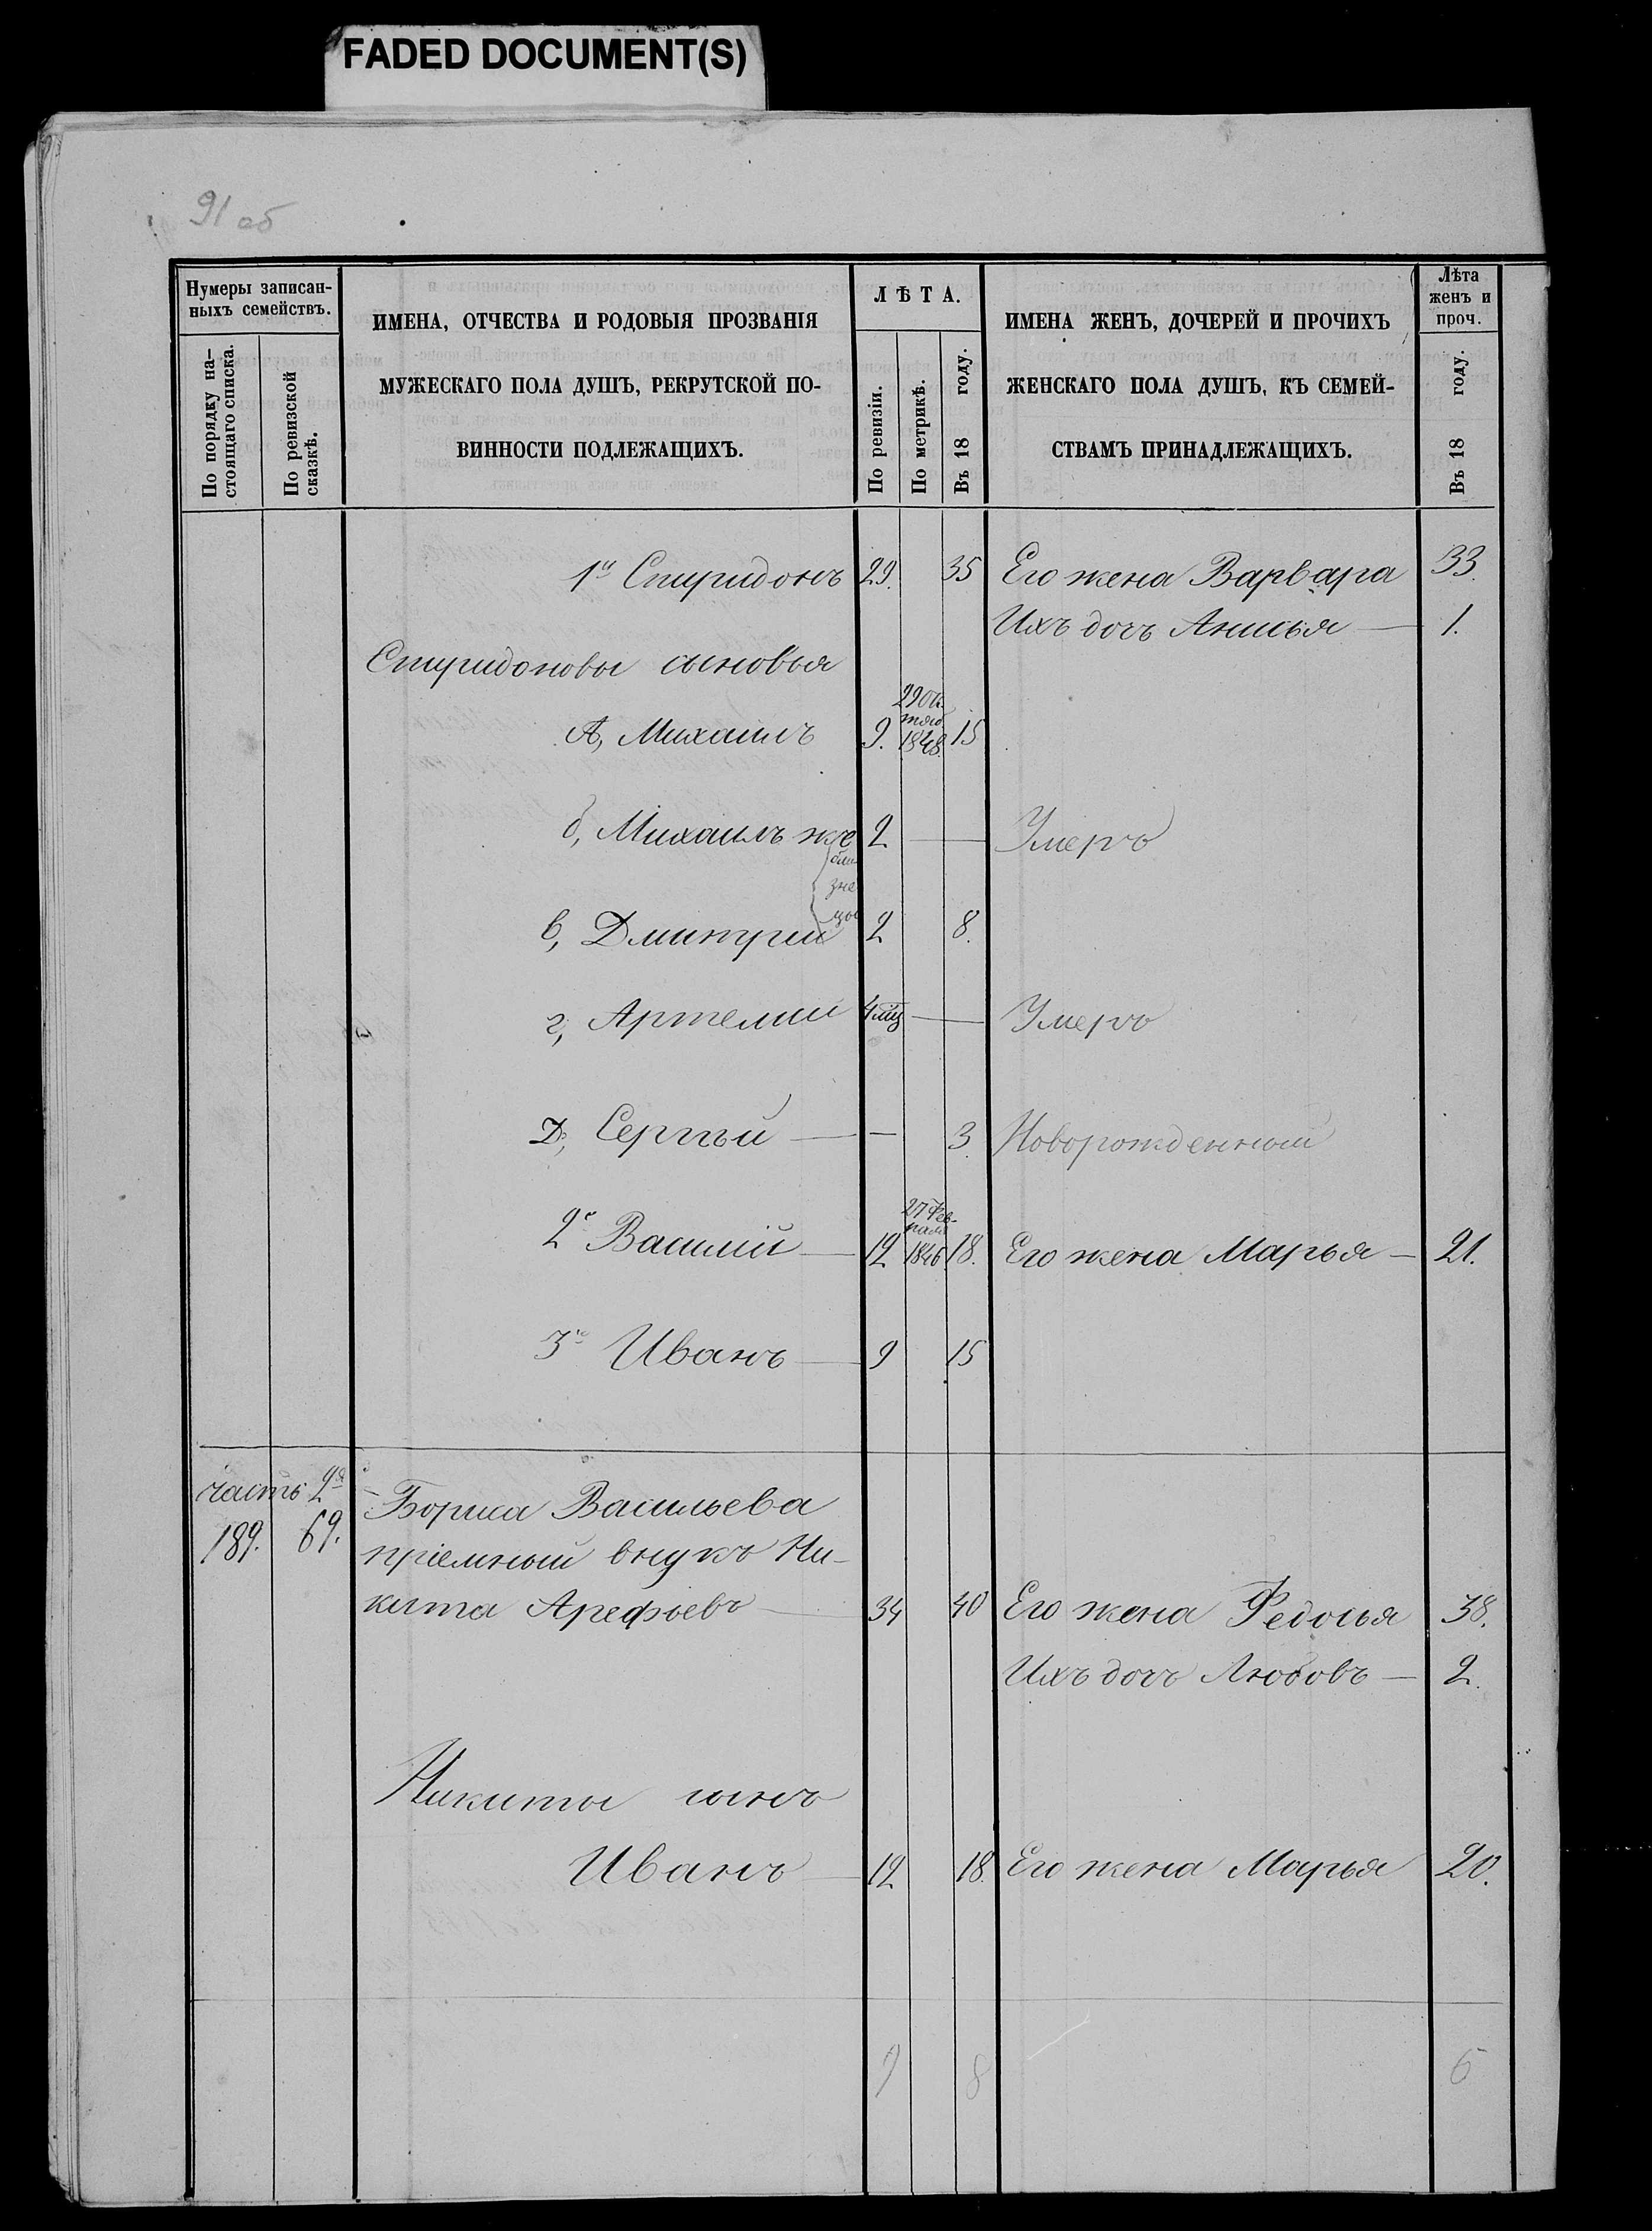 FADED DOCUMENT(S)
91 об
Нумеры записан-
ныхъ семействъ.
По порядку на-
стоящаго списка.
По ревизской
сказкѣ.
ИМЕНА, ОТЧЕСТВА И РОДОВЫЯ ПРОЗВАНІЯ
МУЖЕСКАГО ПОЛА ДУШЪ, РЕКРУТСКОЙ ПО-
ВИННОСТИ ПОДЛЕЖАЩИХЪ.
ЛѢТА.
По ревизіи.
По метрикѣ.
Въ 18 году.
ИМЕНА ЖЕНЪ, ДОЧЕРЕЙ И ПРОЧИХЪ
ЖЕНСКАГО ПОЛА ДУШЪ, КЪ СЕМЕЙ-
СТВАМЪ ПРИНАДЛЕЖАЩИХЪ.
Лѣта
женъ и
проч.
Въ 18 году.
1й Спиридонъ 29. 35 Его жена Варвара 33.
Ихъ дочь Анисья — 1.
Спиридоновы сыновья
А, Михаилъ 9. 22 Ок-
тяб.
1848. 15
б, Михаилъ же 2 — Умеръ
близ
не
цы
в, Дмитрій 2 8.
г, Артемій 4 мц — Умеръ
Д, Сергѣй — — 3. Новорожденный
2й Василій — 12 27 Фев-
раля
1846 18. Его жена Марья — 21.
3й Иванъ — 9 15
часть 2я
189. 69.
Бориса Васильева
пріемный внукъ Ни-
кита Арефьевъ — 34 40 Его жена Федосья 38.
Ихъ дочь Любовь — 2.
Никиты сынъ
Иванъ — 12 18. Его жена Марья 20.
9 8 6